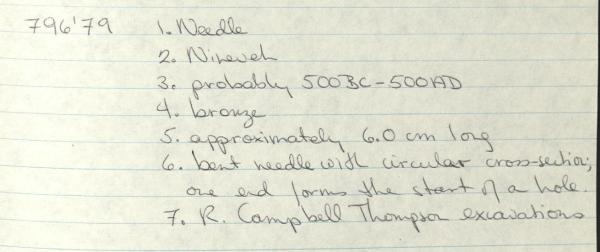 796'79 1. Needle
2. Nineveh
3. probably 500BC-500AD
4. bronze
5. approximately 6.0 cm long
6. bent needle with circular cross-section;
one end forms the start of a hole.
7. R. Campbell Thompson excavations